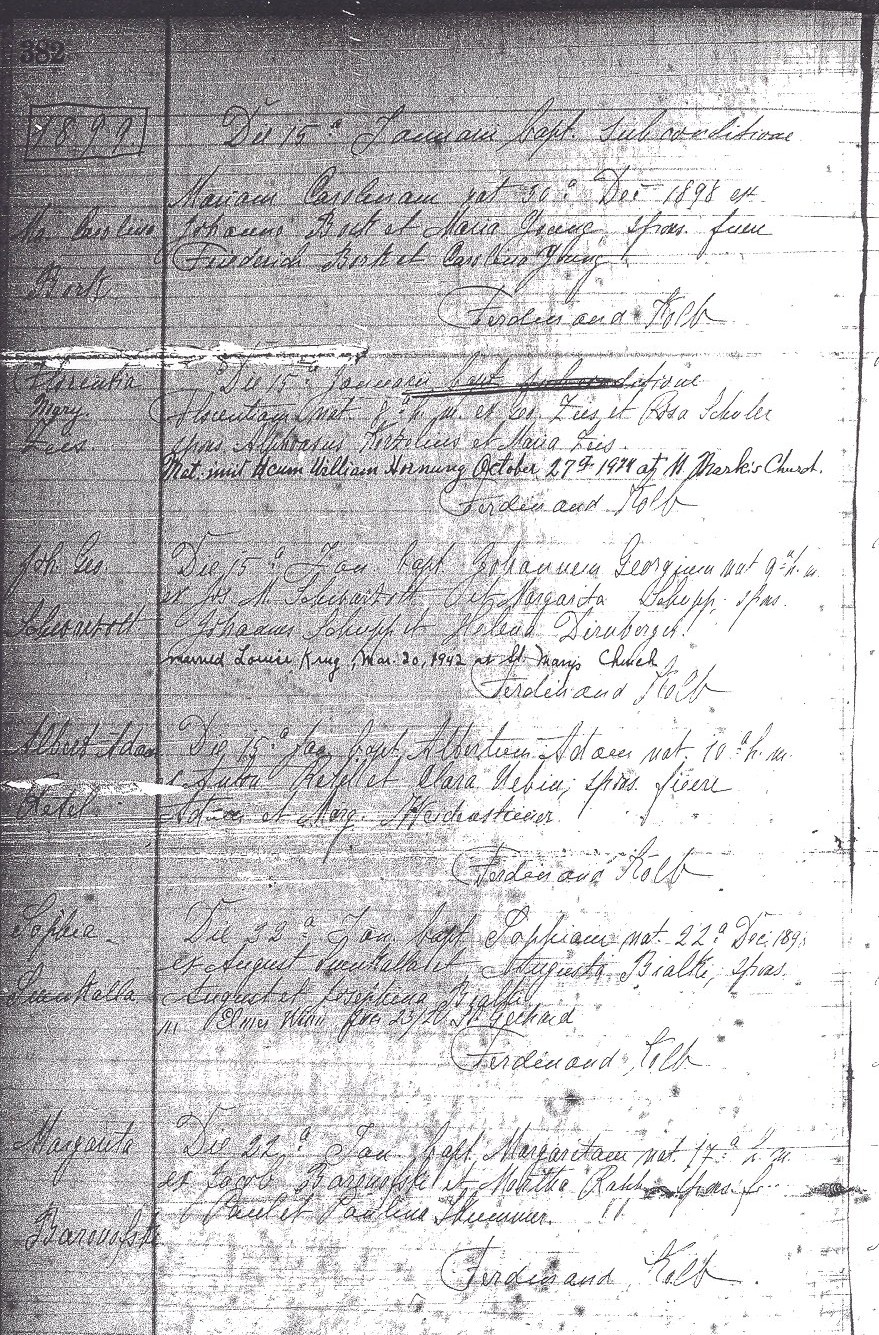 382
1899
Die 15ᵃ Januarii bapt. sub conditione
Mariam Carolinam nat 30ᵃ Dec 1898 ex
Ma. Carolina Johanne Bork et Maria Young spons. fuere
Friederich Bork et Carolina Young
Bork
Ferdinand Kolb
Florentia Die 15ᵃ Januarii bapt. sub conditione
Mary Florentiam nat 8ᵃ h. m. ex Geo. Zies et Rosa Schuler
Zies spons Alphonsus et Maria Zies.
Mat. init cum William Hornung October 27th at St Mark's Church.
Ferdinand Kolb
Joh. Geo. Die 15ᵃ Jan. bapt. Johannem Georgium nat 9ᵃ h. m.
ex Jos. M. et Margarita Schupp, spons.
Johannes Schupp et Helena Dirnberger.
married Louise Krug, Mar. 20, 1942 at St. Marys Church
Ferdinand Kolb
Albert Adam Die 15ᵃ Jan bapt. Albertum Adam nat. 10ᵃ h. m.
ex Anton Ketel et Clara spons. fuere
Ketel Adam et Marg.
Ferdinand Kolb
Sophia Die 22ᵃ Jan. bapt. Sophiam nat. 22ᵃ Dec. 189
ex August et Augusta Bialke, spons.
August et Josephina Bialke
Elmer 23/20 St Gerhard
Ferdinand Kolb
Margarita Die 22ᵃ Jan. bapt. Margaretam nat. 17ᵃ h. m.
ex Jacob Baronofski et Martha spons. f
Paul et Paulina
Baronofski
Ferdinand Kolb.